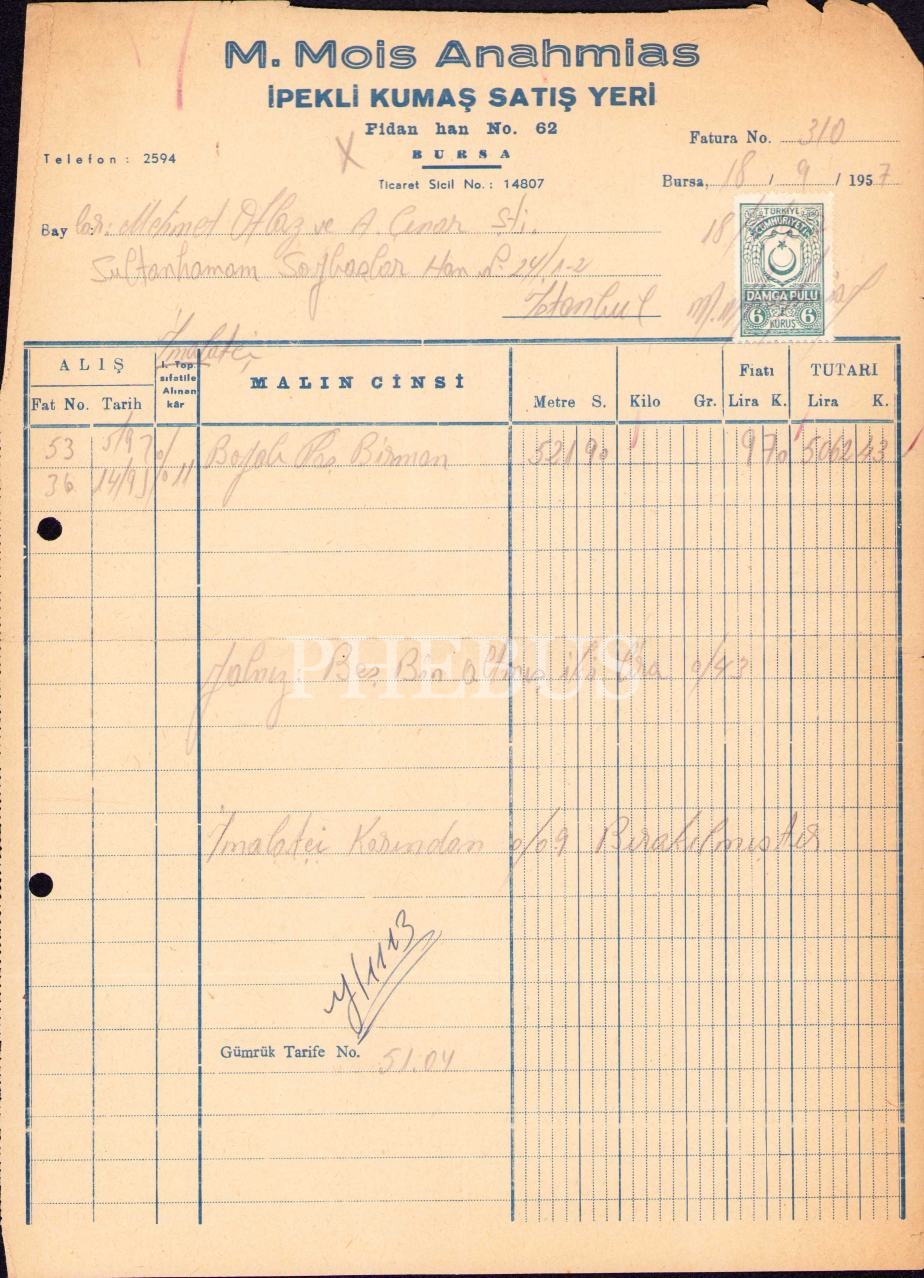 M. Mois Anahmias
İPEKLİ KUMAŞ SATIŞ YERİ
Fidan han No. 62
BURSA
Telefon: 2594
Ticaret Sicil No.: 14807
Fatura No. 310
Bursa, 18 / 9 / 1957
Bay lar: Mehmet ve A. Çınar Şti.
Sultanhamam Han No 24/1-2
İstanbul
18
TÜRKİYE
CUMHURİYETİ
DAMGA PULU
6 KURUŞ 6
İmalatçı
ALIŞ
Fat No. Tarih
I. Top. sıfatile Alınan kâr
MALIN CİNSİ
Metre S.
Kilo Gr.
Fiatı
Lira K.
TUTARI
Lira K.
53 5/9 Boyalı Birman 521 90 9 70 5062 43
36 14/9 % 11
PHEBUS
Yalnız Beş Bin altmış iki lira 0/43
İmalatçı Karından 0/09 Bırakılmıştır
Gümrük Tarife No. 51.04